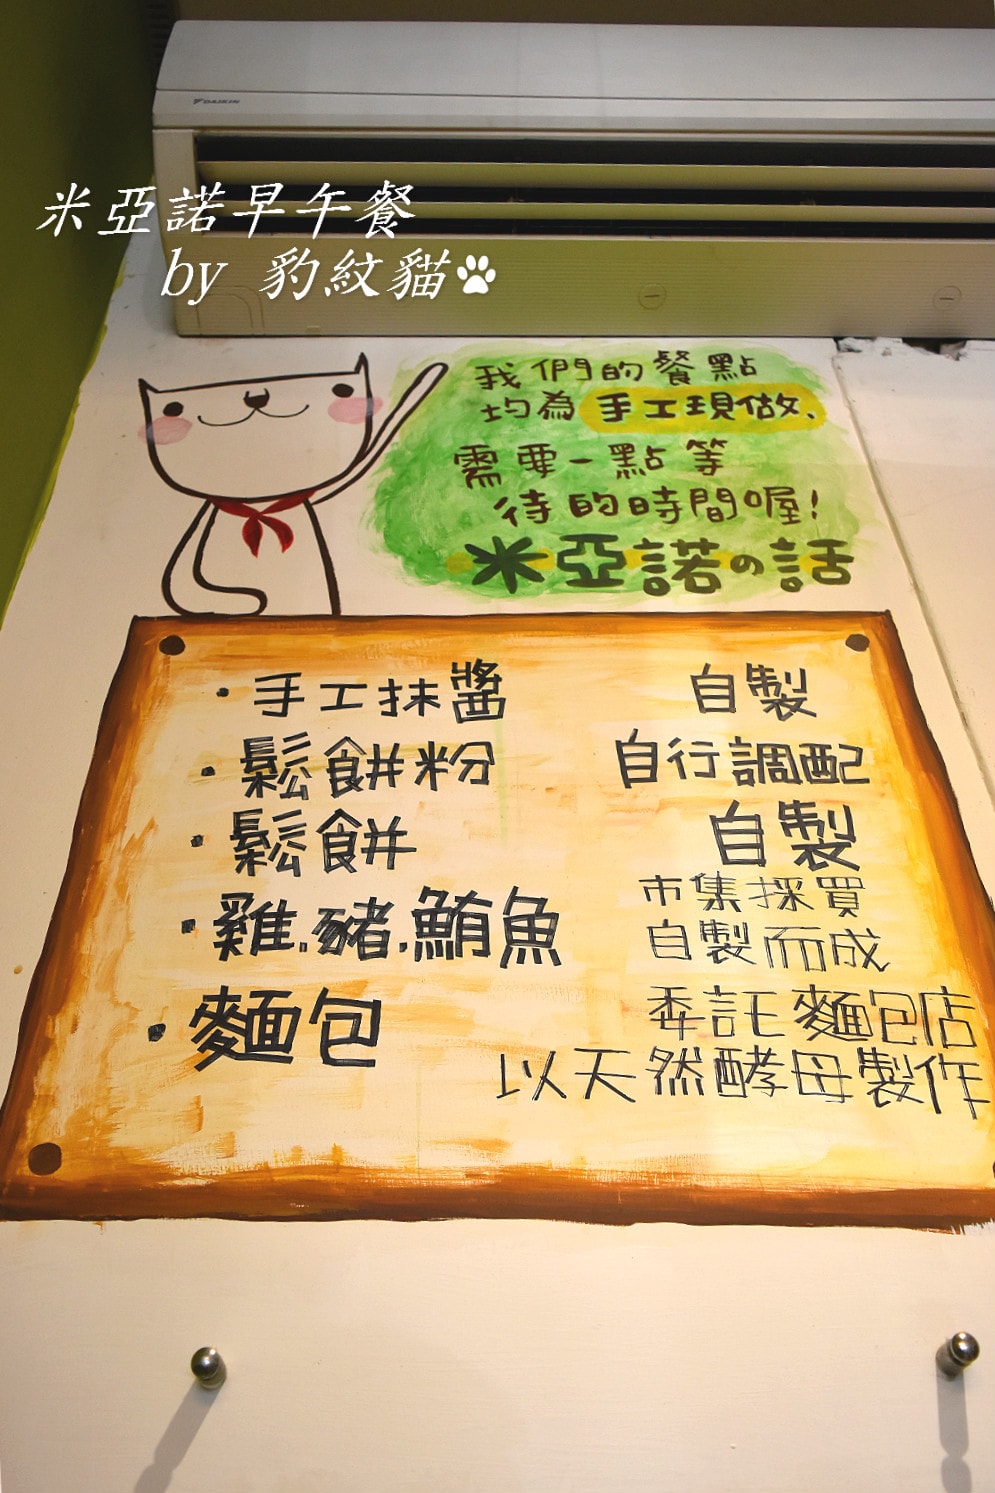 DAIKIN
米亞諾早午餐
by 豹紋貓
我們的餐點
均為手工現做、
需要一點等
待的時間喔!
米亞諾の話
·手工抹醬 自製
·鬆餅粉 自行調配
·鬆餅 自製
·雞.豬.鮪魚 市集採買
自製而成
·麵包 委託麵包店
以天然酵母製作